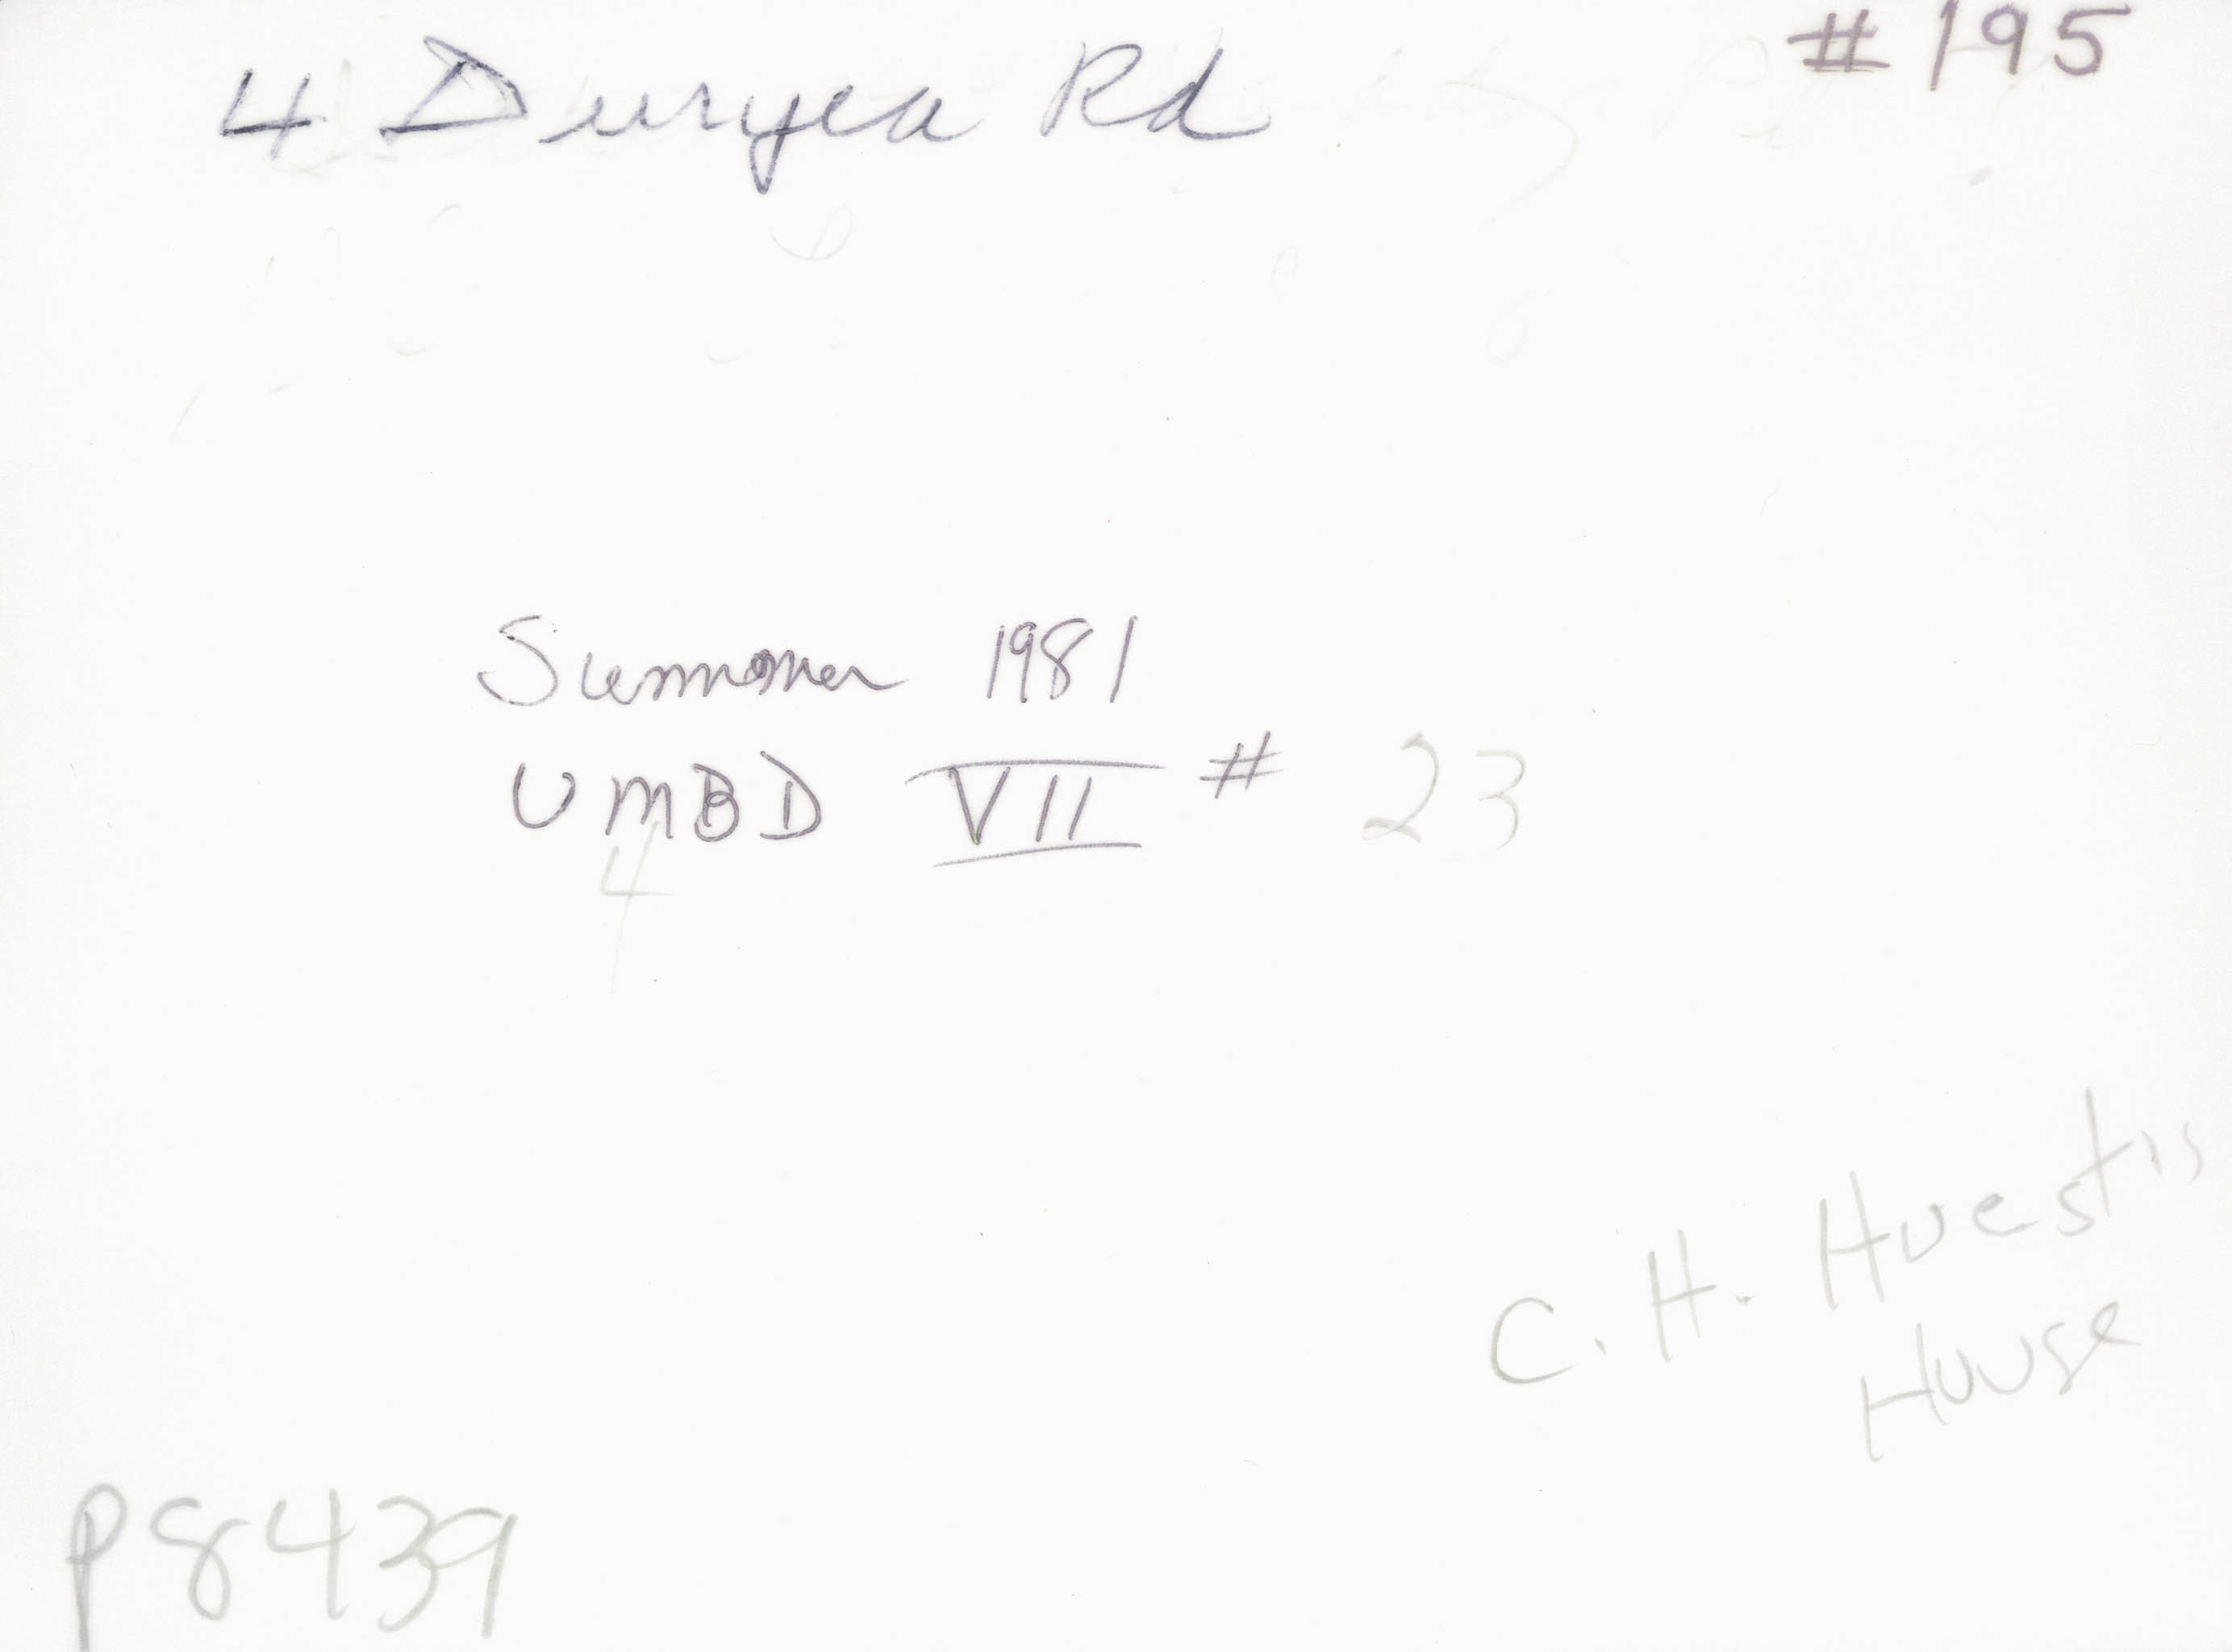 4 Duryea Rd
#195
Summer 1981
UMBD VII # 23
4
C. H. Huestis
House
P8439